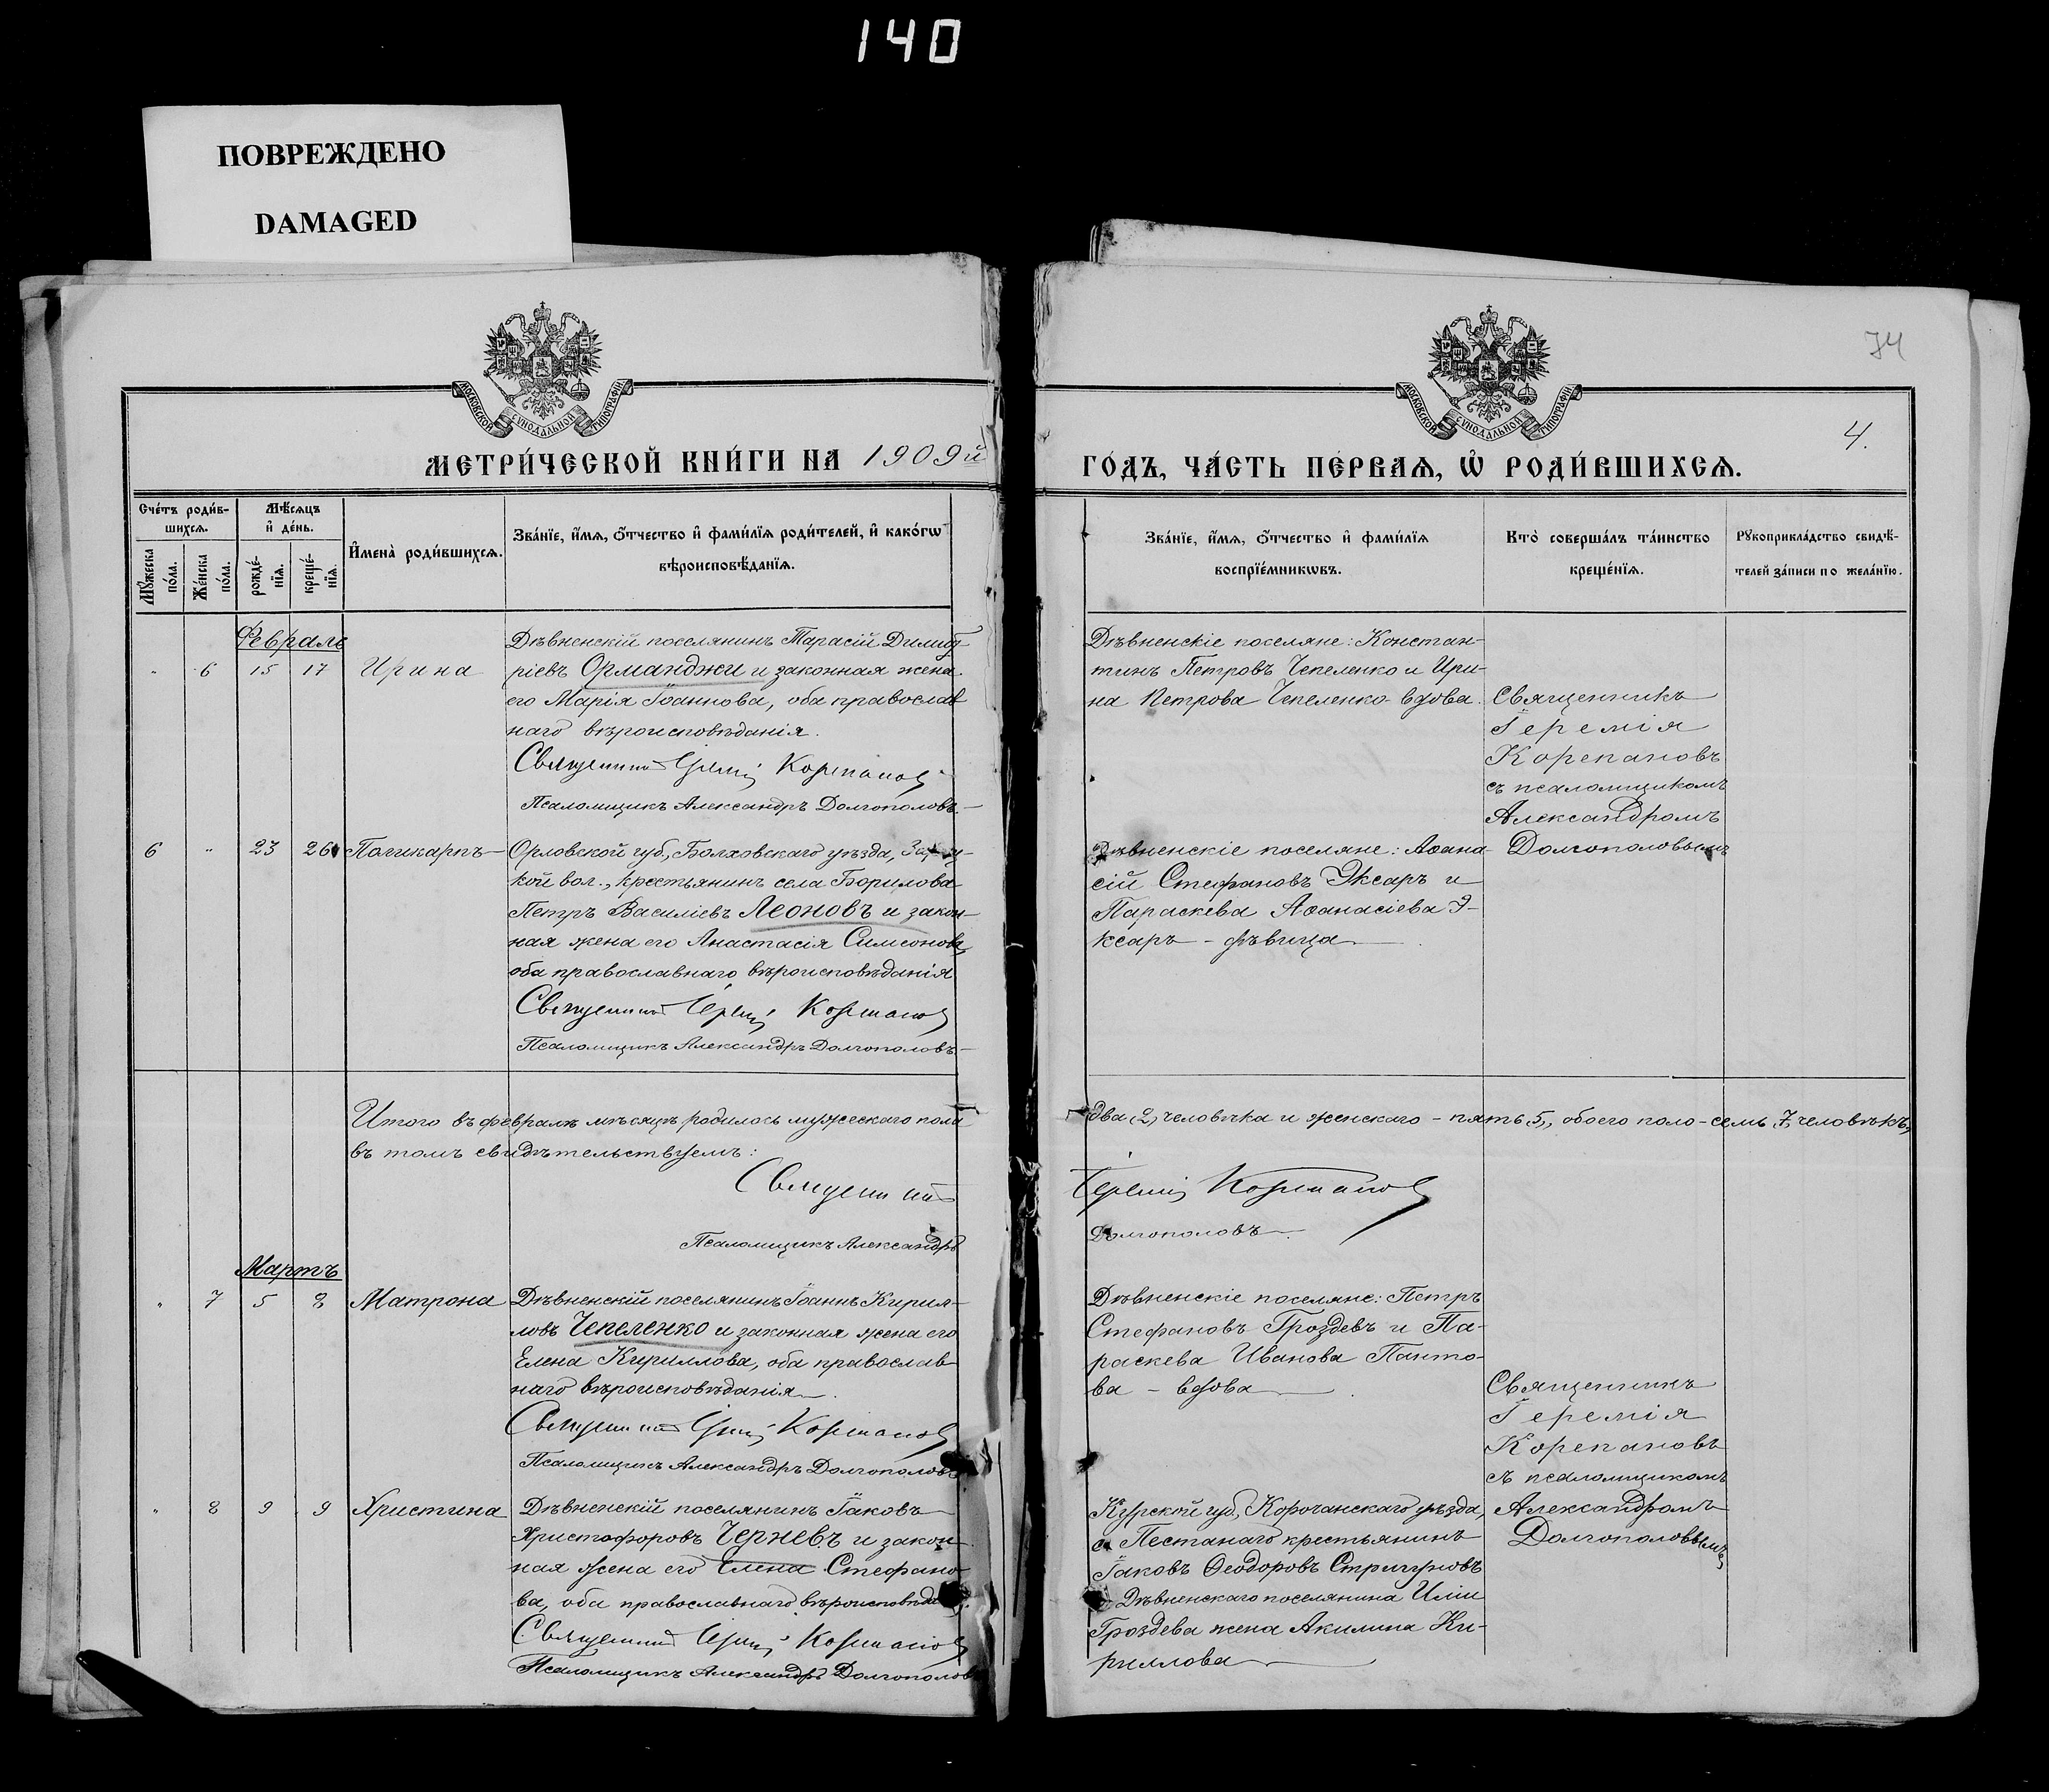 140
ПОВРЕЖДЕНО
DAMAGED
74
МОСКОВСКОЙ СУНОДАЛЬНОЙ ТИПОГРАФИИ
МОСКОВСКОЙ СУНОДАЛЬНОЙ ТИПОГРАФИИ
4.
МЕТРИ́ЧЕСКОЙ КНИ́ГИ НА 1909й
ГО́ДЪ, ЧА́СТЬ ПЕ́РВАѦ, Ѡ҆ РОДИ́ВШИХСѦ.
Сче́тъ роди́в-
шихсѧ.
Мѣ́сѧцъ
и҆ де́нь.
Мꙋ́жеска
по́ла.
Же́нска
по́ла.
рожде́-
нїѧ.
креще́-
нїѧ.
И҆мена̀ роди́вшихсѧ.
Зва́нїе, и҆́мѧ, ѻ҆́тчество и҆ фами́лїѧ роди́телей, и҆ како́гѡ
вѣроисповѣ́данїѧ.
Зва́нїе, и҆́мѧ, ѻ҆́тчество и҆ фами́лїѧ
воспрїе́мникѡвъ.
Кто̀ соверша́лъ та́инство
креще́нїѧ.
Рꙋкоприкла́дство свидѣ́-
телей за́писи по жела́нїю.
Февраль
" 6 15 17 Ирина
Дѣвненскій поселянинъ Тарасій Димит-
ріевъ Орманджи и законная жена
его Марія Іоаннова, оба православ
наго вѣроисповѣданія.
Священникъ Іеремія Корепановъ
Псаломщикъ Александръ Долгополовъ.
Дѣвненскіе поселяне: Констан-
тинъ Петровъ Чепеленко и Ири-
на Петрова Чепеленко вдова.
Священникъ
Іеремія
Корепановъ
съ псаломщикомъ
Александромъ
Долгополовымъ
6 " 23 26 Поликарпъ
Орловской губ., Болховскаго уѣзда,
кой вол., крестьянинъ села Борилова
Петръ Василіевъ Леоновъ и закон-
ная жена его Анастасія Симеонова,
оба православнаго вѣроисповѣданія
Священникъ Іеремія Корепановъ
Псаломщикъ Александръ Долгополовъ
Дѣвненскіе поселяне: Аѳана-
сій Стефановъ Эксаръ и
Параскева Аѳанасіева Э-
ксаръ - дѣвица
Итого въ февралѣ мѣсяцѣ родилось мужескаго пола
два (2) человѣка и женскаго - пять (5), обоего поло - семь (7) человѣкъ,
въ томъ свидѣтельствуемъ:
Священникъ Іеремія Корепановъ
Псаломщикъ Александръ Долгополовъ.
Мартъ
" 7 5 8 Матрона
Дѣвненскій поселянинъ Іоаннъ Кирил-
ловъ Чепеленко и законная жена его
Елена Кириллова, оба православ-
наго вѣроисповѣданія.
Священникъ Іеремія Корепановъ
Псаломщикъ Александръ Долгополовъ
Дѣвненскіе поселяне: Петръ
Стефановъ Гроздевъ и Па-
раскева Иванова Панто-
ва - вдова
Священникъ
Іеремія
Корепановъ
съ псаломщикомъ
Александромъ
Долгополовымъ
" 8 9 9 Христина
Дѣвненскій поселянинъ Іаковъ
Христофоровъ Черневъ и закон-
ная жена его Елена Стефано-
ва, оба православнаго
Священникъ Іеремія Корепановъ
Псаломщикъ Александръ Долгополовъ
Курской губ., Корочанскаго уѣзда,
с. Песчанаго крестьянинъ
Іаковъ Ѳеодоровъ Стригуновъ
Дѣвненскаго поселянина Иліи
Гроздева жена Акилина Ки-
риллова